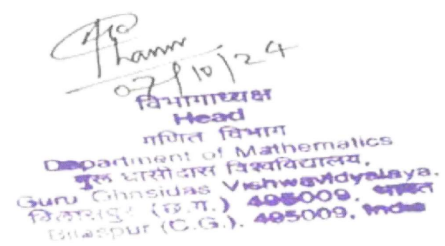 07/10/24
विभागाध्यक्ष
Head
गणित विभाग
Department of Mathematics
गुरू घासीदास विश्वविद्यालय,
Guru Ghasidas Vishwavidyalaya,
बिलासपुर (छ.ग.) 495009, भारत
Bilaspur (C.G.), 495009, India